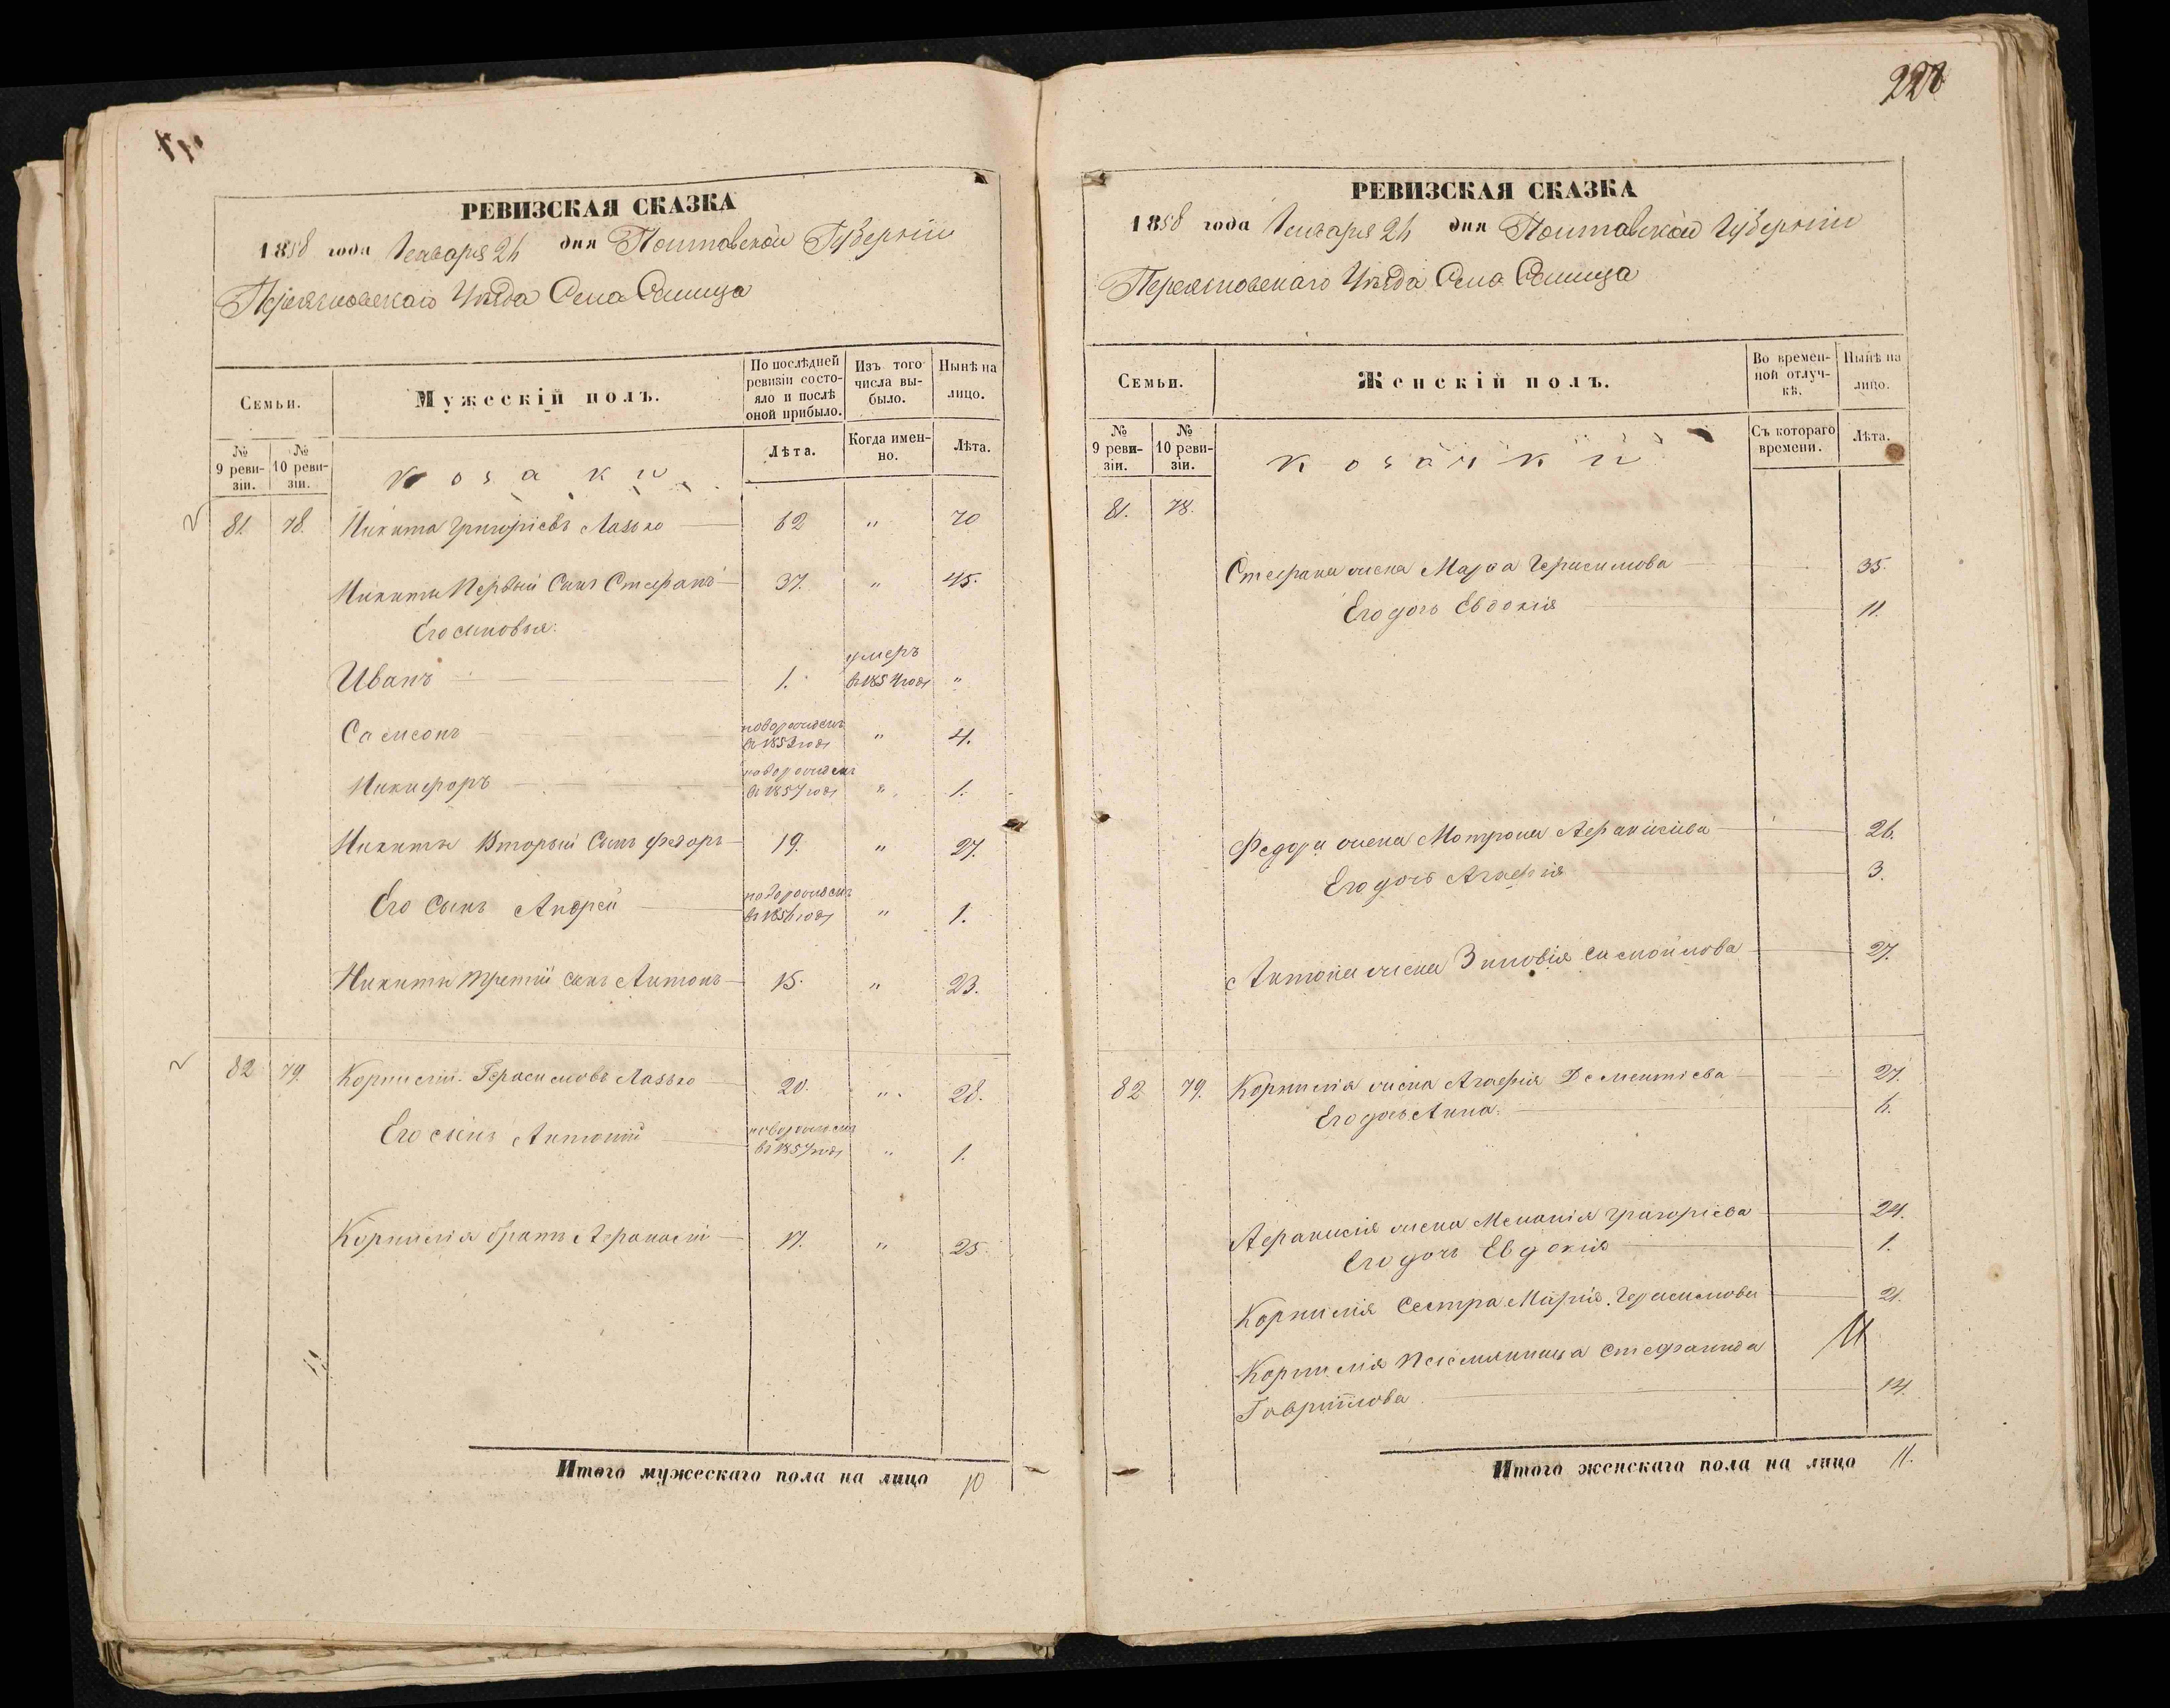 РЕВИЗСКАЯ СКАЗКА
1858 года Генваря 24 дня Полтавской Губерніи
Переяславскаго Уѣзда Села
Семьи.
Мужескій полъ.
По послѣдней ревизіи состояло и послѣ оной прибыло.
Изъ того числа выбыло.
Нынѣ на лицо.
№ 9 ревизіи.
№ 10 ревизіи.
козаки
Лѣта.
Когда именно.
Лѣта.
81. 78. Никита Григоріевъ Лазько 62 " 70
Никиты Первый Сынъ Стефанъ 37. " 45.
Его сыновья:
Иванъ 1. умеръ въ 1854 годѣ "
Самсонъ новорожденъ въ 1853 годѣ " 4.
Никифоръ новорожденъ въ 1857 годѣ " 1.
Никиты Вторый Сынъ Федоръ 19. " 27.
Его Сынъ Андрей новорожденъ въ 1856 годѣ " 1.
Никиты третій сынъ Антонъ 15. " 23.
82 79. Корнилій Герасимовъ Лазько 20. " 28.
Его сынъ Антоній новорожденъ въ 1857 годѣ " 1.
Корнилія братъ Афанасій 17. " 25.
Итого мужескаго пола на лицо 10
РЕВИЗСКАЯ СКАЗКА
1858 года Генваря 24 дня Полтавской Губерніи
Переяславскаго Уѣзда Села
Семьи.
Женскій полъ.
Во временной отлучкѣ.
Нынѣ на лицо.
№ 9 ревизіи.
№ 10 ревизіи.
козачки
Съ котораго времени.
Лѣта.
81. 78.
Стефана жена Марфа Герасимова 35.
Его дочь Евдокія 11.
Федора жена Мотрона Афанасіева 26.
Его дочь Агафія 3.
Антона жена Зиновія Самойлова 27.
82 79. Корнилія жена Агафія Дементіева 27.
Его дочь Анна. 6.
Афанасія жена Меланія Григоріева 24.
Его дочь Евдокія 1.
Корнилія Сестра Марія Герасимова 21.
Корнилія племянница Стефанида
Гавриилова 14.
Итого женскаго пола на лицо 11.